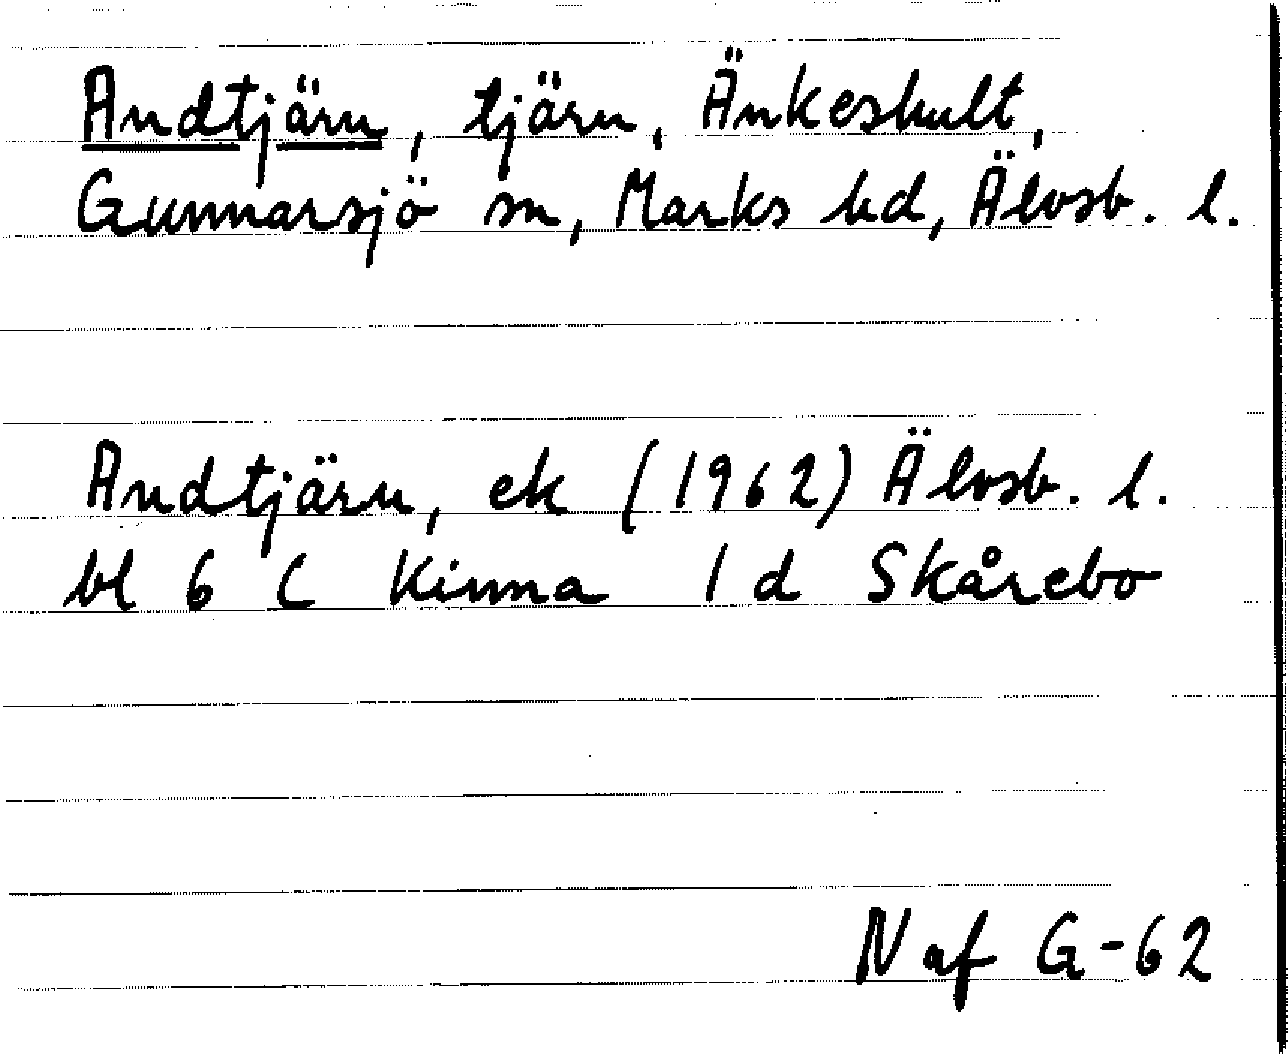 Andtjärn, tjärn, Änkeshult,
Gunnarsjö sn, Marks hd, Älvsb. l.
Andtjärn, ek (1962) Älvsb. l.
bl 6 C Kinna 1 d Skårebo
N af G-62